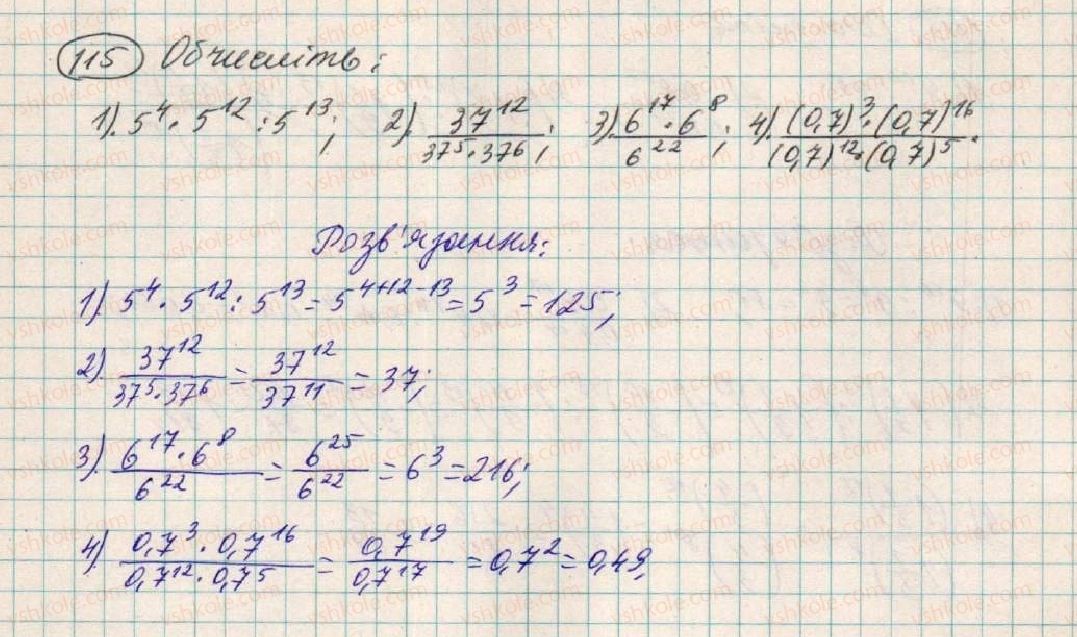 115 Обчисліть:
1). 5⁴ · 5¹² : 5¹³; 2). 37¹² / 37⁵·37⁶; 3). 6¹⁷·6⁸ / 6²²; 4). (0,7)³·(0,7)¹⁶ / (0,7)¹²·(0,7)⁵.
Розв'язання:
1). 5⁴ · 5¹² : 5¹³ = 5⁴⁺¹²⁻¹³ = 5³ = 125;
2). 37¹² / 37⁵·37⁶ = 37¹² / 37¹¹ = 37;
3). 6¹⁷·6⁸ / 6²² = 6²⁵ / 6²² = 6³ = 216;
4) 0,7³·0,7¹⁶ / 0,7¹²·0,7⁵ = 0,7¹⁹ / 0,7¹⁷ = 0,7² = 0,49.
vshkole.com